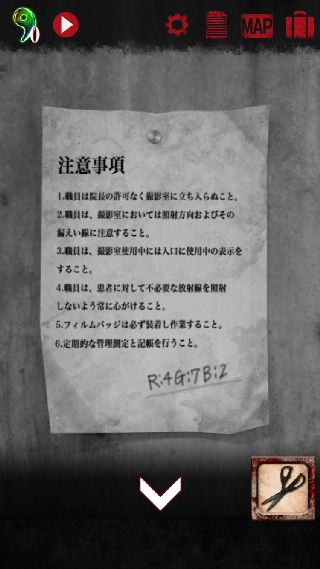 0
MAP
注意事項
1.職員は院長の許可なく撮影室に立ち入らぬこと。
2.職員は、撮影室においては照射方向およびその
漏えい線に注意すること。
3.職員は、撮影室使用中には入口に使用中の表示を
すること。
4.職員は、患者に対して不必要な放射線を照射
しないよう常に心がけること。
5.フィルムバッジは必ず装着し作業すること。
6.定期的な管理測定と記帳を行うこと。
R:4G:7B:2